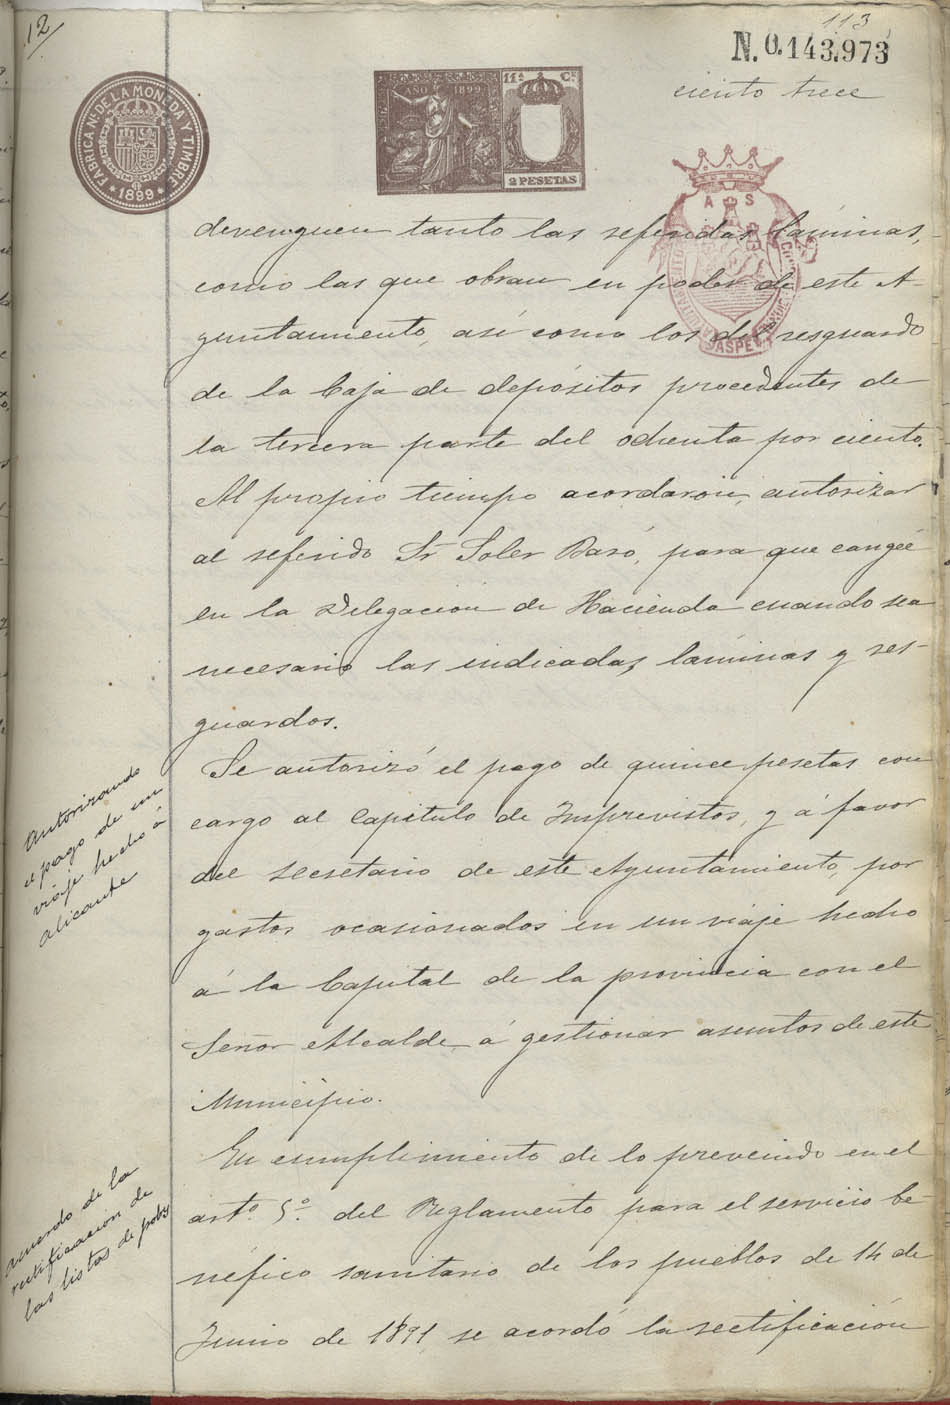 12
113
N. 0.143.973
ciento trece
FABRICA NL. DE LA MONEDA Y TIMBRE
* 1899 *
AÑO 1899
11ª Cᴱ
2 PESETAS
A S
ASPE
devenguen tanto las referidas láminas,
como las que obran en poder de este A-
yuntamiento, así como los del resguardo
de la Caja de depósitos procedentes de
la tercera parte del ochenta por ciento.
Al propio tiempo acordaron, autorizar
al referido Sr Soler Baró, para que cangée
en la Delegación de Hacienda cuando sea
necesario las indicadas láminas y res-
guardos.
Autorizando
el pago de un
viaje hecho á
Alicante
Se autorizó el pago de quince pesetas con
cargo al Capitulo de Imprevistos, y á favor
del Secretario de este Ayuntamiento, por
gastos ocasionados en un viaje hecho
á la Capital de la provincia con el
Señor Alcalde á gestionar asuntos de este
Municipio.
acuerdo de la
rectificacion de
las listas de pobs
En cumplimiento de lo prevenido en el
artº. 5º. del Reglamento para el servicio be-
néfico sanitario de los pueblos de 14 de
Junio de 1891 se acordó la rectificación